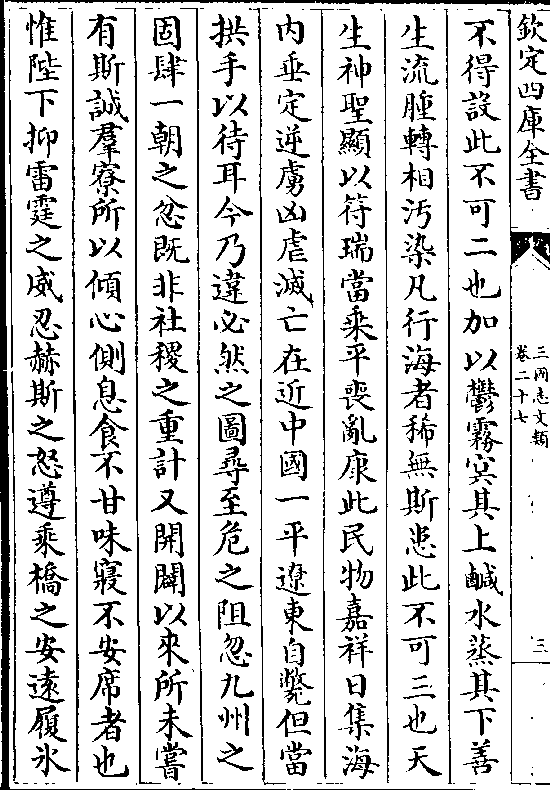 欽定四庫全書
三國志文類
卷二十七
三
不得設此不可二也加以鬱霧冥其上鹹水蒸其下善
生流腫轉相汚染凡行海者稀無斯患此不可三也天
生神聖顯以符瑞當乘平喪亂康此民物嘉祥日集海
内垂定逆虜凶虐滅亡在近中國一平遼東自斃但當
拱手以待耳今乃違必然之圖尋至危之阻忽九州之
固肆一朝之忿既非社稷之重計又開闢以來所未嘗
有斯誠羣寮所以傾心側息食不甘味寢不安席者也
惟陛下抑雷霆之威忍赫斯之怒遵乘橋之安遠履氷